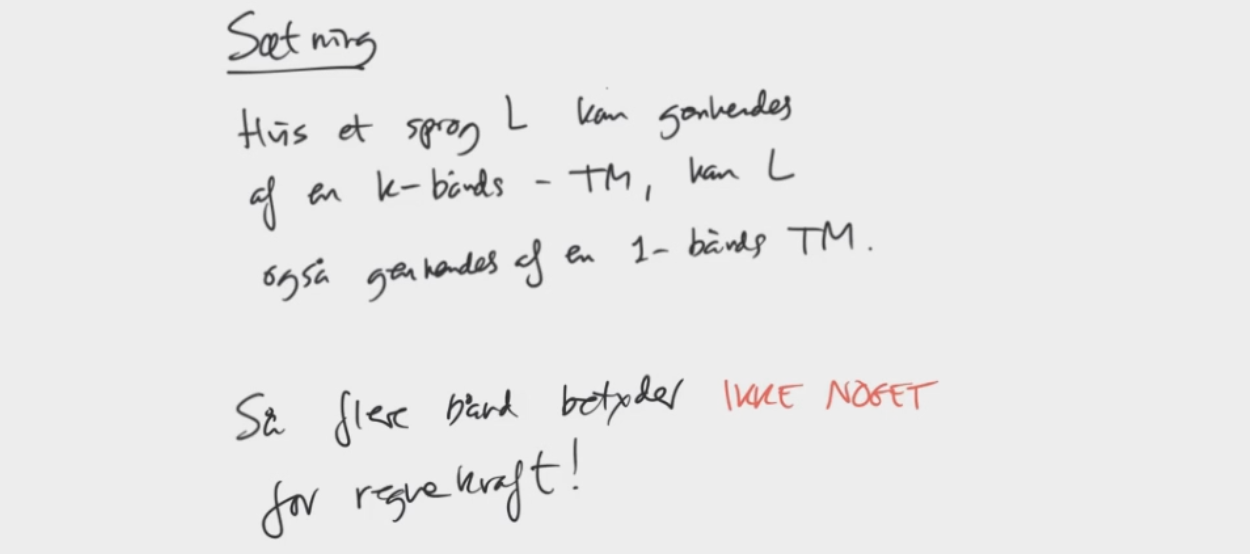 Sætning
Hvis et sprog L kan genkendes
af en k-bånds-TM, kan L
også genkendes af en 1-bånds TM.
Så flere bånd betyder IKKE NOGET
for regnekraft!